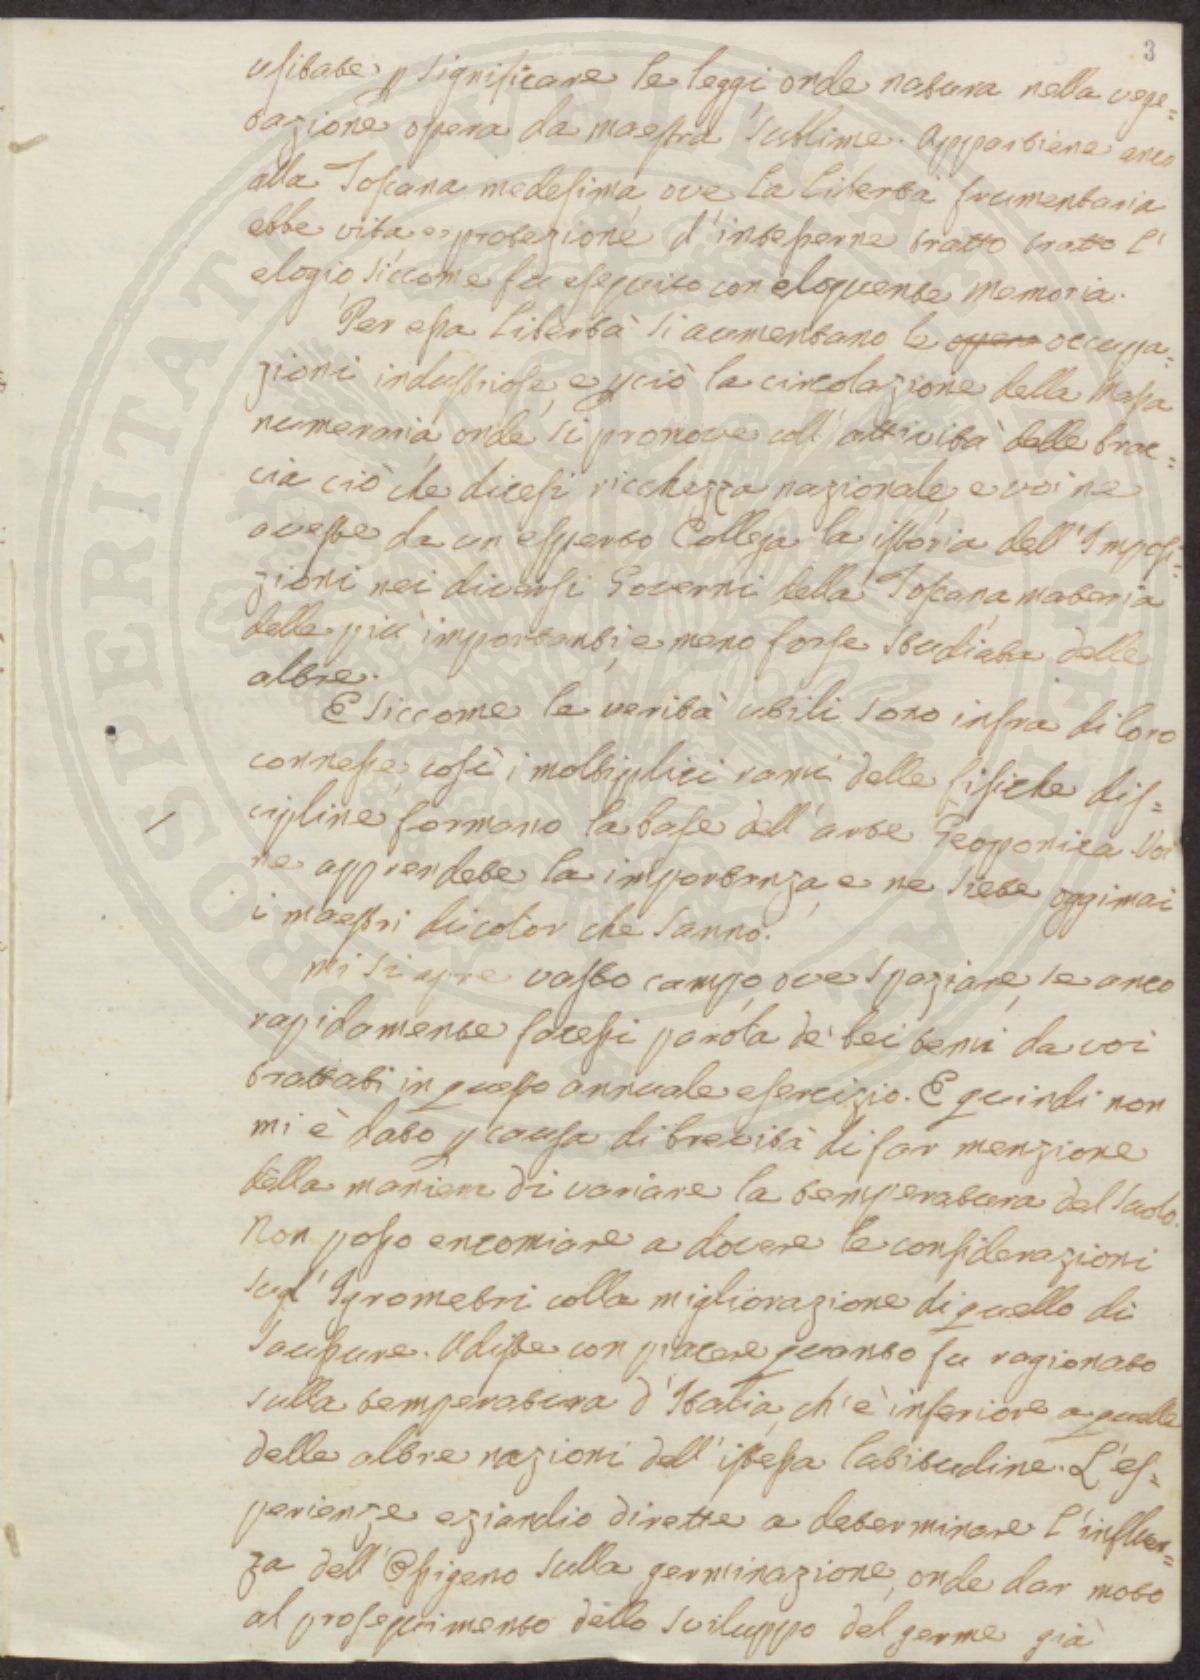 3
usitate p significare le leggi onde natura nella vege=
tazione opera da maestra sublime. Appartiene anco
alla Toscana medesima ove la libertà frumentaria
ebbe vita e protezione d'intesserne tratto tratto l'
elogio siccome fu eseguito con eloquente memoria.
Per essa libertà si aumentano le occupa=
zioni industriose, e p ciò la circolazione della massa
numeraria, onde si promove coll'attività delle brac=
cia ciò che dicesi ricchezza nazionale, e voi ne
aveste da un esperto Collega la istoria dell'Imposi=
zioni nei diversi Governi della Toscana, materia
delle più importanti, e meno forse studiata delle
altre.
E siccome le verità utili sono infra di loro
connesse, così i moltiplici rami delle fisiche dis=
cipline, formano la base dell'arte Geoponica. Voi
ne apprendete la importanza, e ne siete oggimai
i maestri di color che sanno.
Mi si apre vasto campo, ove spaziare, se anco
rapidamente facessi parola de' bei temi da voi
trattati in questo annuale esercizio. E quindi non
mi è dato p causa di brevità di far menzione
della maniera di variare la temperatura del suolo.
Non posso encomiare a dovere le considerazioni
sugl'Igrometri colla migliorazione di quello di
Saussure. Udiste con piacere quanto fu ragionato
sulla temperatura d'Italia, ch'è inferiore a quelle
delle altre nazioni dell'istessa latitudine. L'es=
perienze eziandio dirette a determinare l'influen=
za dell'Ossigeno sulla germinazione, onde dar moto
al proseguimento dello sviluppo del germe già
PROSPERITATI PUBLICAE AUGENDAE